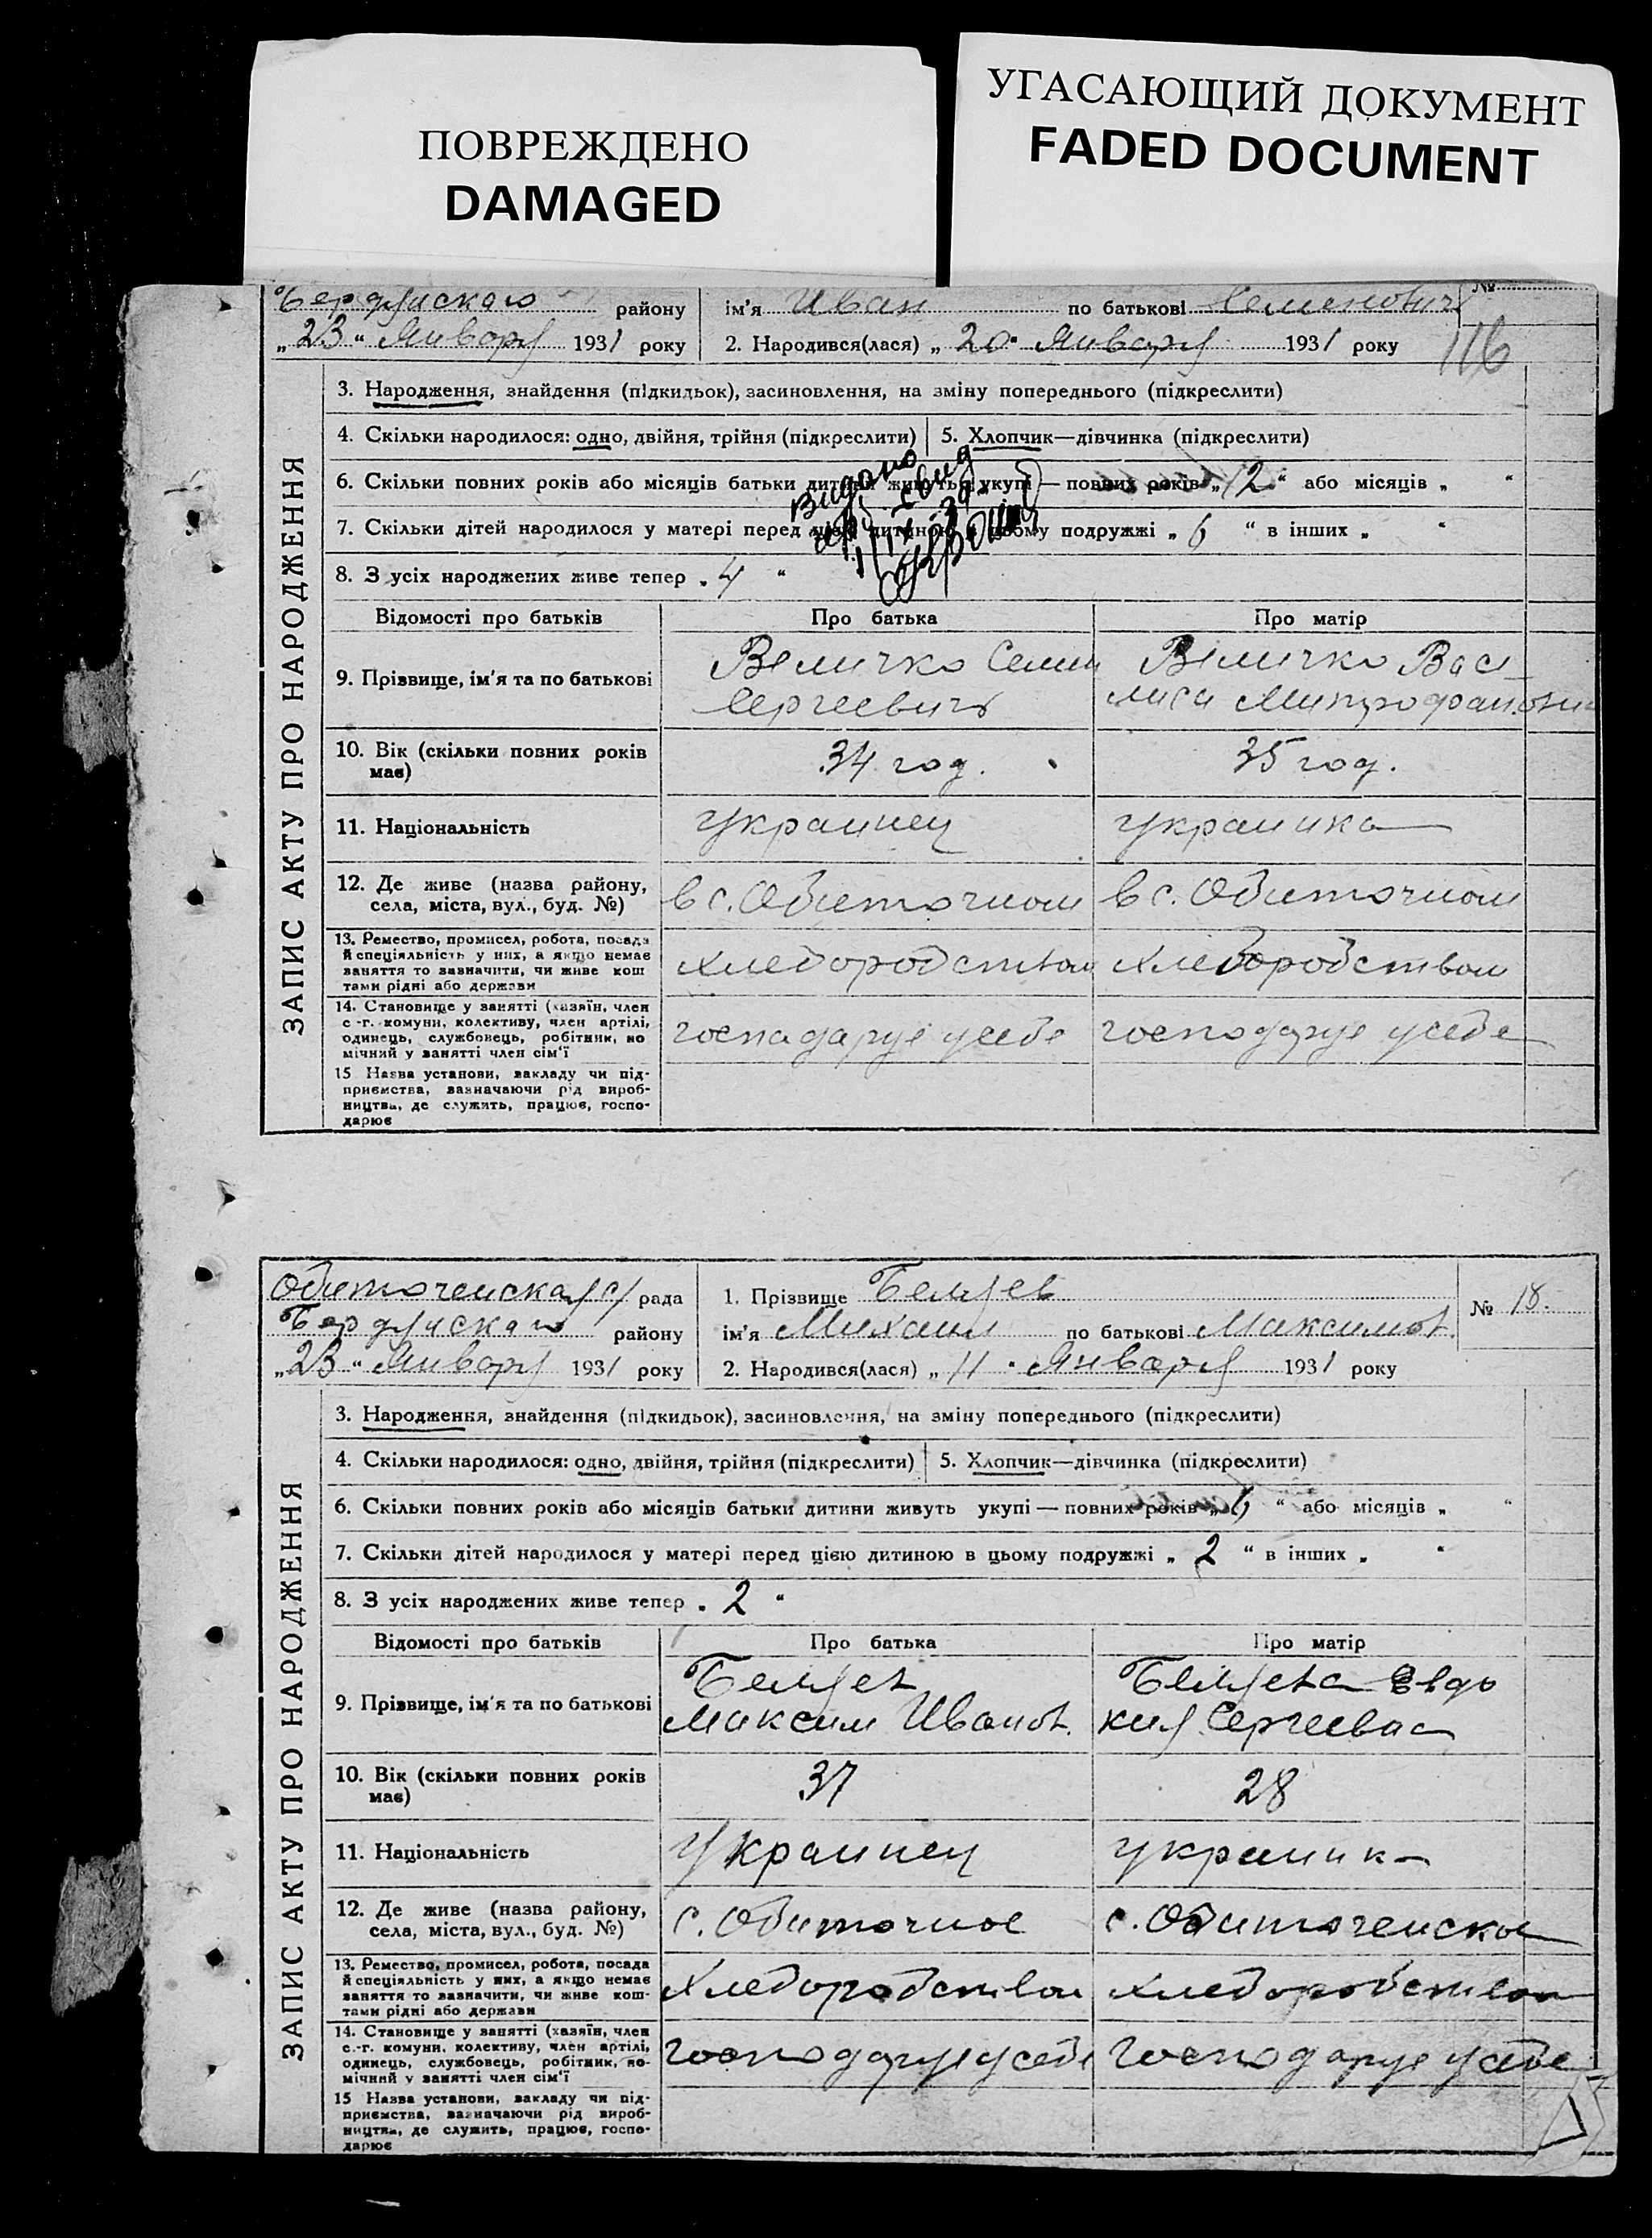 ПОВРЕЖДЕНО
DAMAGED
УГАСАЮЩИЙ ДОКУМЕНТ
FADED DOCUMENT
Бердянского району
ім'я Иван по батькові Семенович
№
„23" Января 1931 року
2. Народився(лася) „20" Января 1931 року
116
ЗАПИС АКТУ ПРО НАРОДЖЕННЯ
3. Народження, знайдення (підкидьок), засиновлення, на зміну попереднього (підкреслити)
4. Скільки народилося: одно, двійня, трійня (підкреслити)
5. Хлопчик—дівчинка (підкреслити)
6. Скільки повних років або місяців батьки дитини живуть укупі — повних років „12" або місяців „ "
7. Скільки дітей народилося у матері перед цією дитиною в цьому подружжі „6" в інших „ "
8. З усіх народжених живе тепер „4"
Видано
свид
Відомості про батьків
Про батька
Про матір
9. Прізвище, ім'я та по батькові
Величко Семен
Сергеевич
Величко Вас
лиса Митрофановна
10. Вік (скільки повних років
має)
34 год.
35 год.
11. Національність
Украинец
украинка
12. Де живе (назва району,
села, міста, вул., буд. №)
в с. Обиточном
в с. Обиточном
13. Ремество, промисел, робота, посада
й спеціяльність у них, а якщо немає
заняття то зазначити, чи живе кош
тами рідні або держави
хлеборобством
хлеборобством
14. Становище у занятті (хазяїн, член
с.-г. комуни, колективу, член артілі,
одинець, службовець, робітник, по
мічний у занятті член сім'ї
госпадаруе у себе
господаруе у себе
15 Назва установи, закладу чи під-
приємства, зазначаючи рід вироб-
ництва, де служить, працює, госпо-
дарює
Обиточенская с/рада
1. Прізвище Беляев
№ 18.
Бердянского району
ім'я Михаил по батькові Максимов.
„23" Января 1931 року
2. Народився(лася) „11" Января 1931 року
ЗАПИС АКТУ ПРО НАРОДЖЕННЯ
3. Народження, знайдення (підкидьок), засиновлення, на зміну попереднього (підкреслити)
4. Скільки народилося: одно, двійня, трійня (підкреслити)
5. Хлопчик—дівчинка (підкреслити)
6. Скільки повних років або місяців батьки дитини живуть укупі — повних років „6" або місяців „ "
7. Скільки дітей народилося у матері перед цією дитиною в цьому подружжі „2" в інших „ "
8. З усіх народжених живе тепер „2"
Відомості про батьків
Про батька
Про матір
9. Прізвище, ім'я та по батькові
Беляев
Максим Иванов.
Беляева Евдо
кия Сергеевна
10. Вік (скільки повних років
має)
37
28
11. Національність
Украинец
украинк
12. Де живе (назва району,
села, міста, вул., буд. №)
с. Обиточное
с. Обиточенская
13. Ремество, промисел, робота, посада
й спеціяльність у них, а якщо немає
заняття то зазначити, чи живе кош-
тами рідні або держави
хлеборобством
хлеборобством
14. Становище у занятті (хазяїн, член
с.-г. комуни, колективу, член артілі,
одинець, службовець, робітник, по-
мічний у занятті член сім'ї
господаруе у себе
господаруе у себе
15 Назва установи, закладу чи під-
приємства, зазначаючи рід вироб-
ництва, де служить, працює, госпо-
дарює